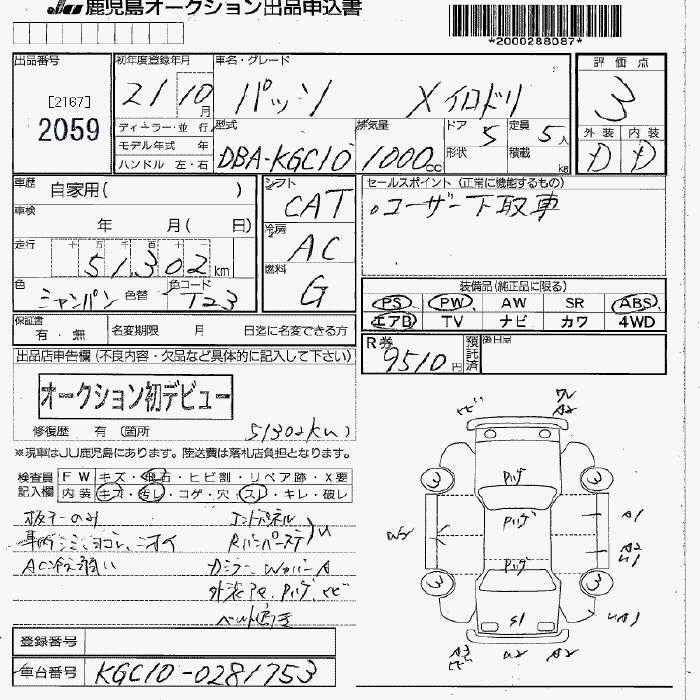 JU 鹿児島オークション出品申込書
*2000288087*
出品番号
[2167]
2059
初年度登録年月
21 10月
車名・グレード
パッソ Xイロドリ
評価点
3
外装 内装
D D
ディーラー・並行
モデル年式 年
ハンドル 左・右
型式
DBA-KGC10
排気量
1000cc
ドア 5
形状
定員 5人
積載 kg
車歴 自家用( )
車検 年 月( 日)
走行 十 万 千 百 十 一
51,302km
色 シャンパン 色替 色コード T23
シフト CAT
冷房 AC
燃料 G
セールスポイント (正常に機能するもの)
。ユーザー下取車
装備品(純正品に限る)
PS PW AW SR ABS
エアB TV ナビ カワ 4WD
保証書 有・無
名変期限 月 日迄に名変できる方
R券 9510円
預託済
後日品
出品店申告欄(不良内容・欠品など具体的に記入して下さい)
オークション初デビュー
修復歴 有(箇所 51302km)
※現車はJU鹿児島にあります。陸送費は落札店負担となります。
検査員記入欄
FW キズ・飛石・ヒビ割・リペア跡・X要
内装 キズ・汚レ・コゲ・穴・スレ・キレ・破レ
エンドパネル
車内シミ、ヨゴレ、ニオイ
AC冷え弱い
登録番号
車台番号 KGC10-0281753
A2
3 3
A1
W2
A2
3 3
S1
A3
A2